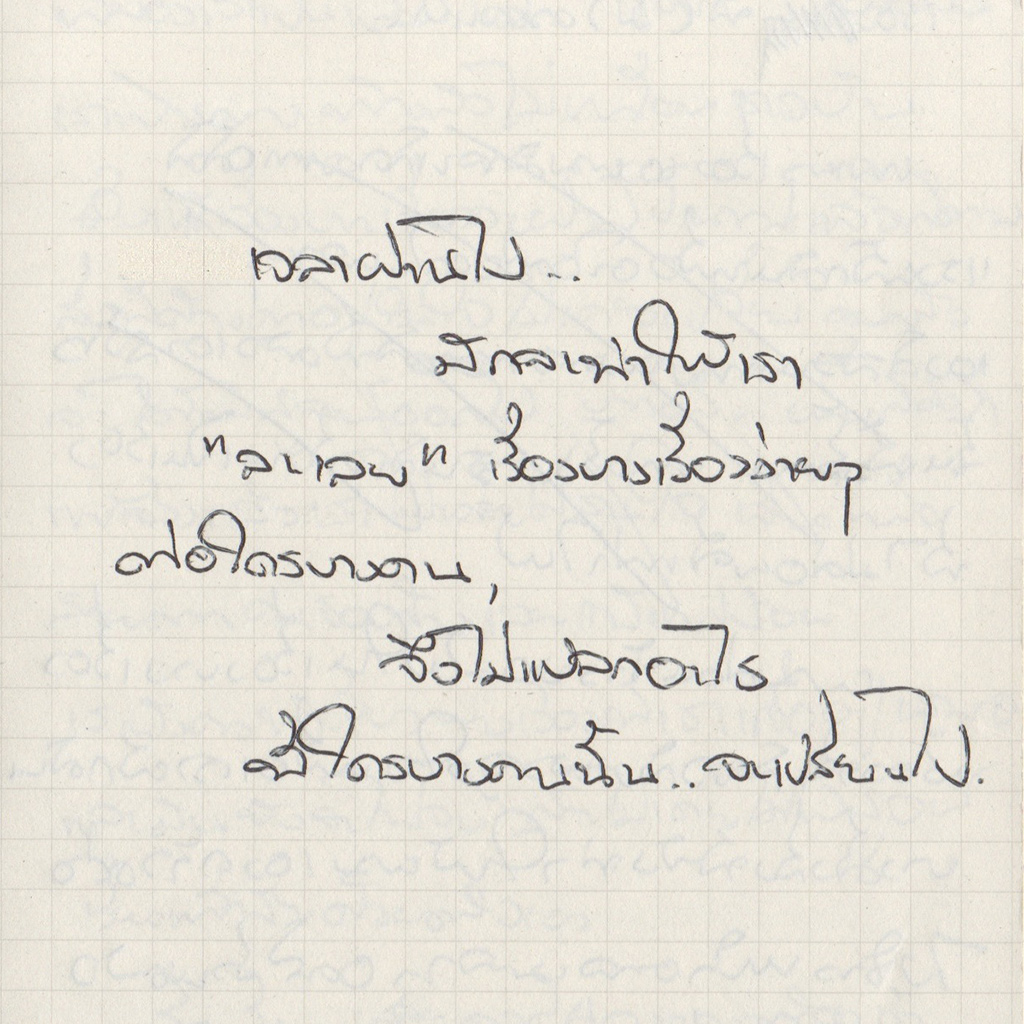 เวลาผ่านไป..
มักจะทำให้เรา
"ละเลย" เรื่องบางเรื่องง่ายๆ
ต่อใครบางคน,
จึงไม่แปลกอะไร
ที่ใครบางคนนั้น.. จะเปลี่ยนไป.